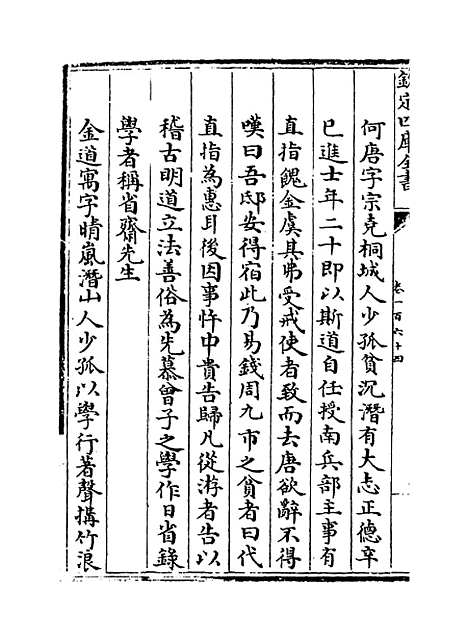 欽定四庫全書
卷一百六十四
何唐字宗堯桐城人少孤貧沉潛有大志正德辛
巳進士年二十即以斯道自任授南兵部主事有
直指餽金虞其弗受戒使者致而去唐欲辭不得
嘆曰吾邸安得宿此乃易錢周九市之貧者曰代
直指為惠耳後因事忤中貴告歸凡從游者告以
稽古明道立法善俗為先慕曾子之學作日省錄
學者稱省齋先生
金道寓字晴嵐潛山人少孤以學行著聲搆竹浪